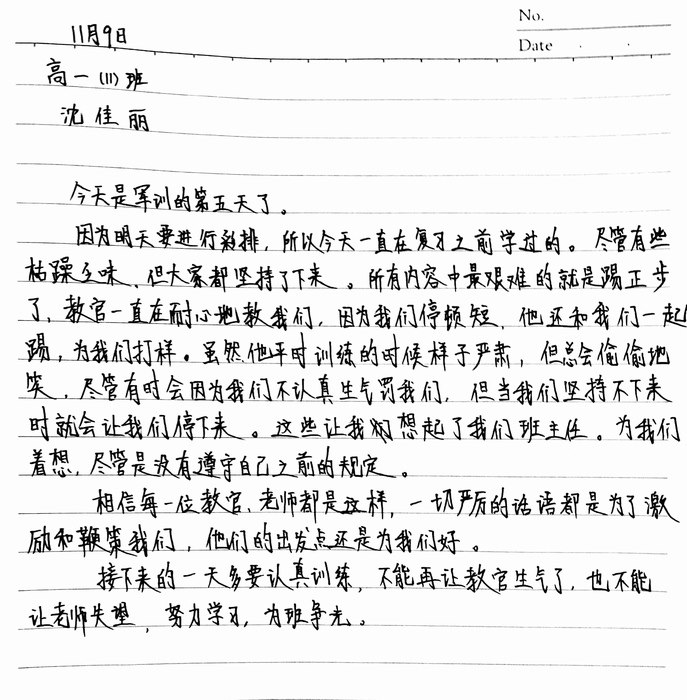 No.
11月9日
Date
高一(11)班
沈佳丽
今天是军训的第五天了。
因为明天要进行彩排,所以今天一直在复习之前学过的。尽管有些
枯躁乏味,但大家都坚持了下来。所有内容中最艰难的就是踢正步
了,教官一直在耐心地教我们,因为我们停顿短,他还和我们一起
踢,为我们打样。虽然他平时训练的时候样子严肃,但总会偷偷地
笑,尽管有时会因为我们不认真生气罚我们,但当我们坚持不下来
时就会让我们停下来。这些让我想起了我们班主任。为我们
着想,尽管是没有遵守自己之前的规定。
相信每一位教官、老师都是这样,一切严厉的话语都是为了激
励和鞭策我们,他们的出发点还是为我们好。
接下来的一天多要认真训练,不能再让教官生气了,也不能
让老师失望,努力学习,为班争光。